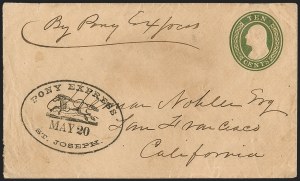 By Pony Express
TEN
CENTS
PONY EXPRESS
MAY 20
ST. JOSEPH.
Nobles Esq
San Francisco
California